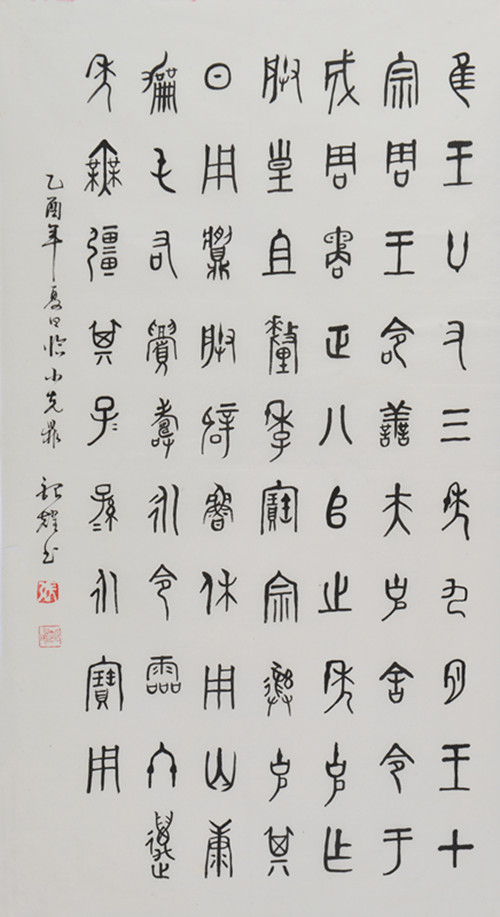 隹王廿又三年九月王才
宗周王命善夫克舍令于
成周遹正八𠂤之年克乍
朕皇且釐季寶宗彝克其
日用䵼朕辟魯休用匄康
勵屯右眉壽永令霝冬萬
年無疆其子=孫=永寶用
乙酉年夏日临小克鼎 书